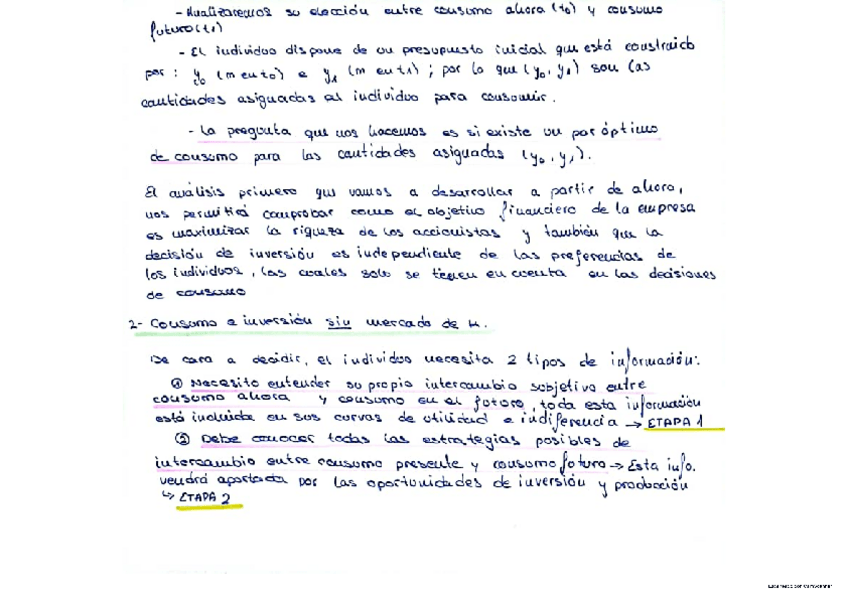 - Analizaremos su elección entre consumo ahora (t0) y consumo
futuro (t1)
- El individuo dispone de un presupuesto inicial que está construido
por : y0 (m en t0) e y1 (m en t1) ; por lo que (y0, y1) son las
cantidades asignadas al individuo para consumir.
- La pregunta que nos hacemos es si existe un par óptimo
de consumo para las cantidades asignadas (y0, y1).
El análisis primero que vamos a desarrollar a partir de ahora,
nos permitirá comprobar como el objetivo financiero de la empresa
es maximizar la riqueza de los accionistas y también que la
decisión de inversión es independiente de las preferencias de
los individuos, las cuales solo se tienen en cuenta en las decisiones
de consumo
2- Consumo e inversión sin mercado de K.
De cara a decidir, el individuo necesita 2 tipos de información:
① Necesito entender su propio intercambio subjetivo entre
consumo ahora y consumo en el futuro, toda esta información
está incluida en sus curvas de utilidad e indiferencia → ETAPA 1
② Debe conocer todas las estrategias posibles de
intercambio entre consumo presente y consumo futuro → Esta info.
vendrá aportada por las oportunidades de inversión y producción
↳ ETAPA 2